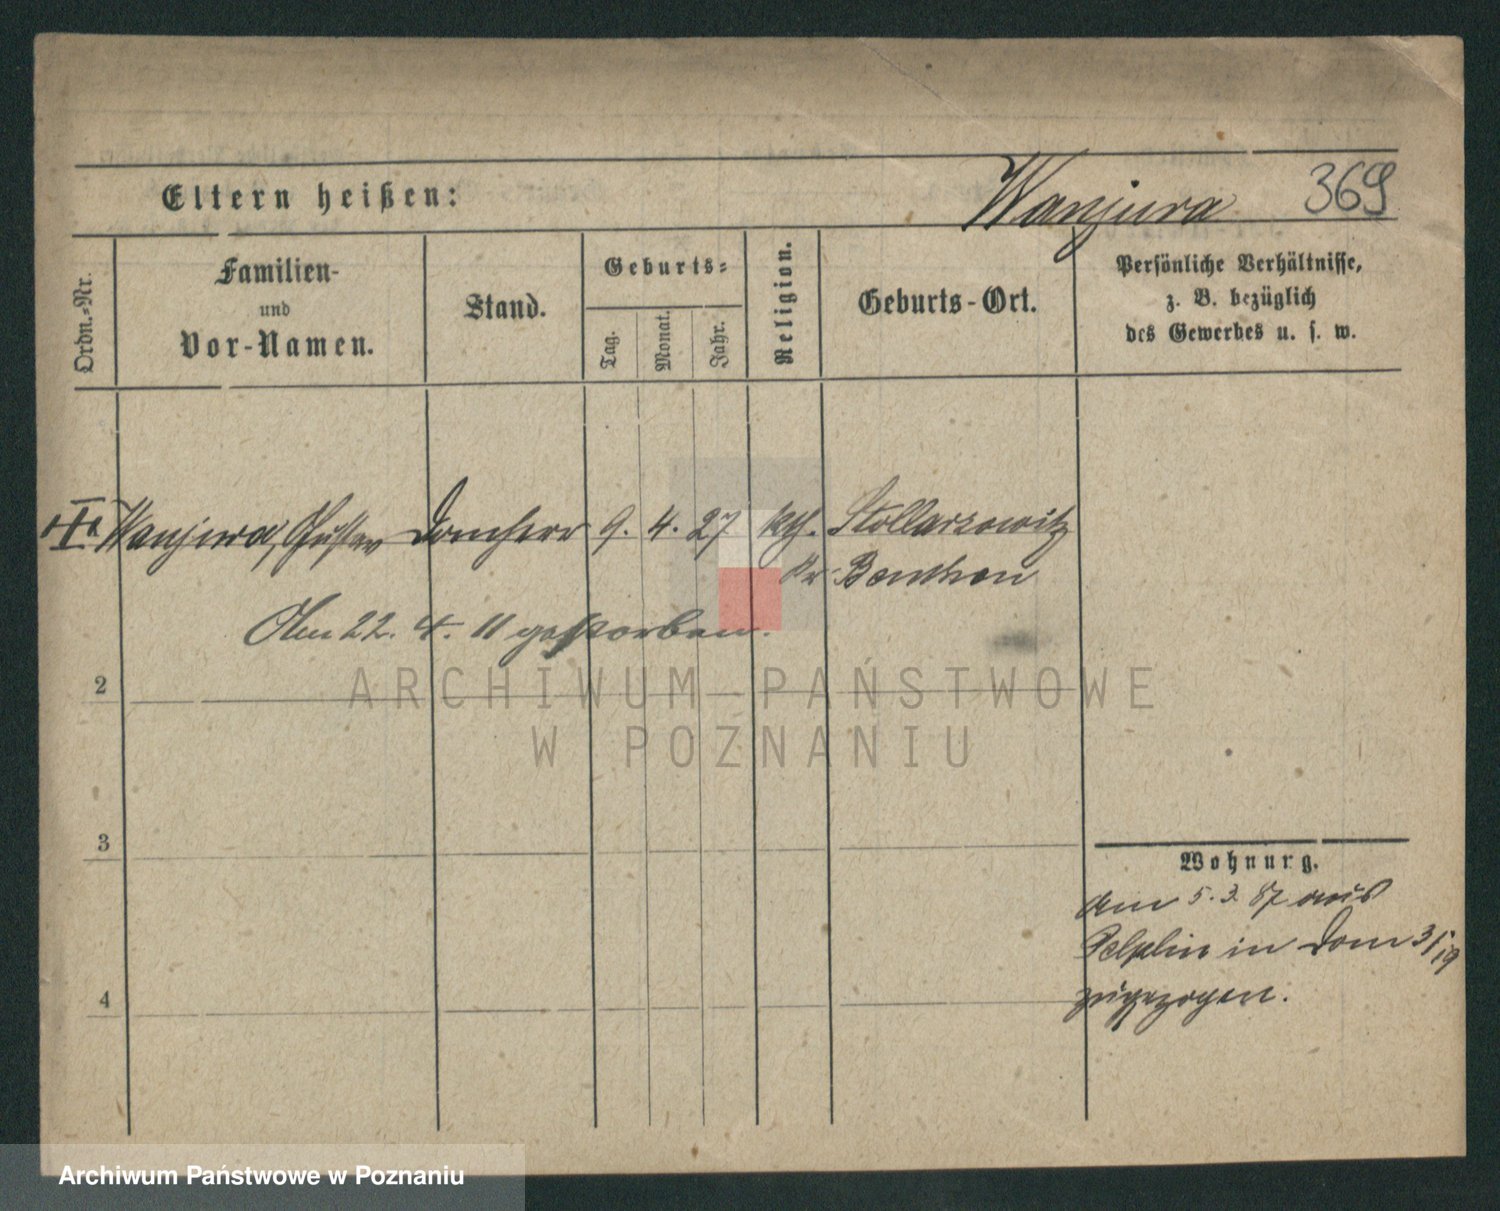 Eltern heißen:
Wanjura 369
Ordn.-Nr.
Familien-
und
Vor-Namen.
Stand.
Geburts-
Tag.
Monat.
Jahr.
Religion.
Geburts-Ort.
Persönliche Verhältnisse,
z. B. bezüglich
des Gewerbes u. s. w.
Wanjura, Gustav Domherr 9. 4. 27 kth. Stollarzowitz
Kr. Beuthen
Am 22. 4. 11 gestorben.
2
ARCHIWUM PAŃSTWOWE
W POZNANIU
3
Wohnung.
Am 5. 3. 87 aus
Pelplin in Dom 3/19
4
zugezogen.
Archiwum Państwowe w Poznaniu